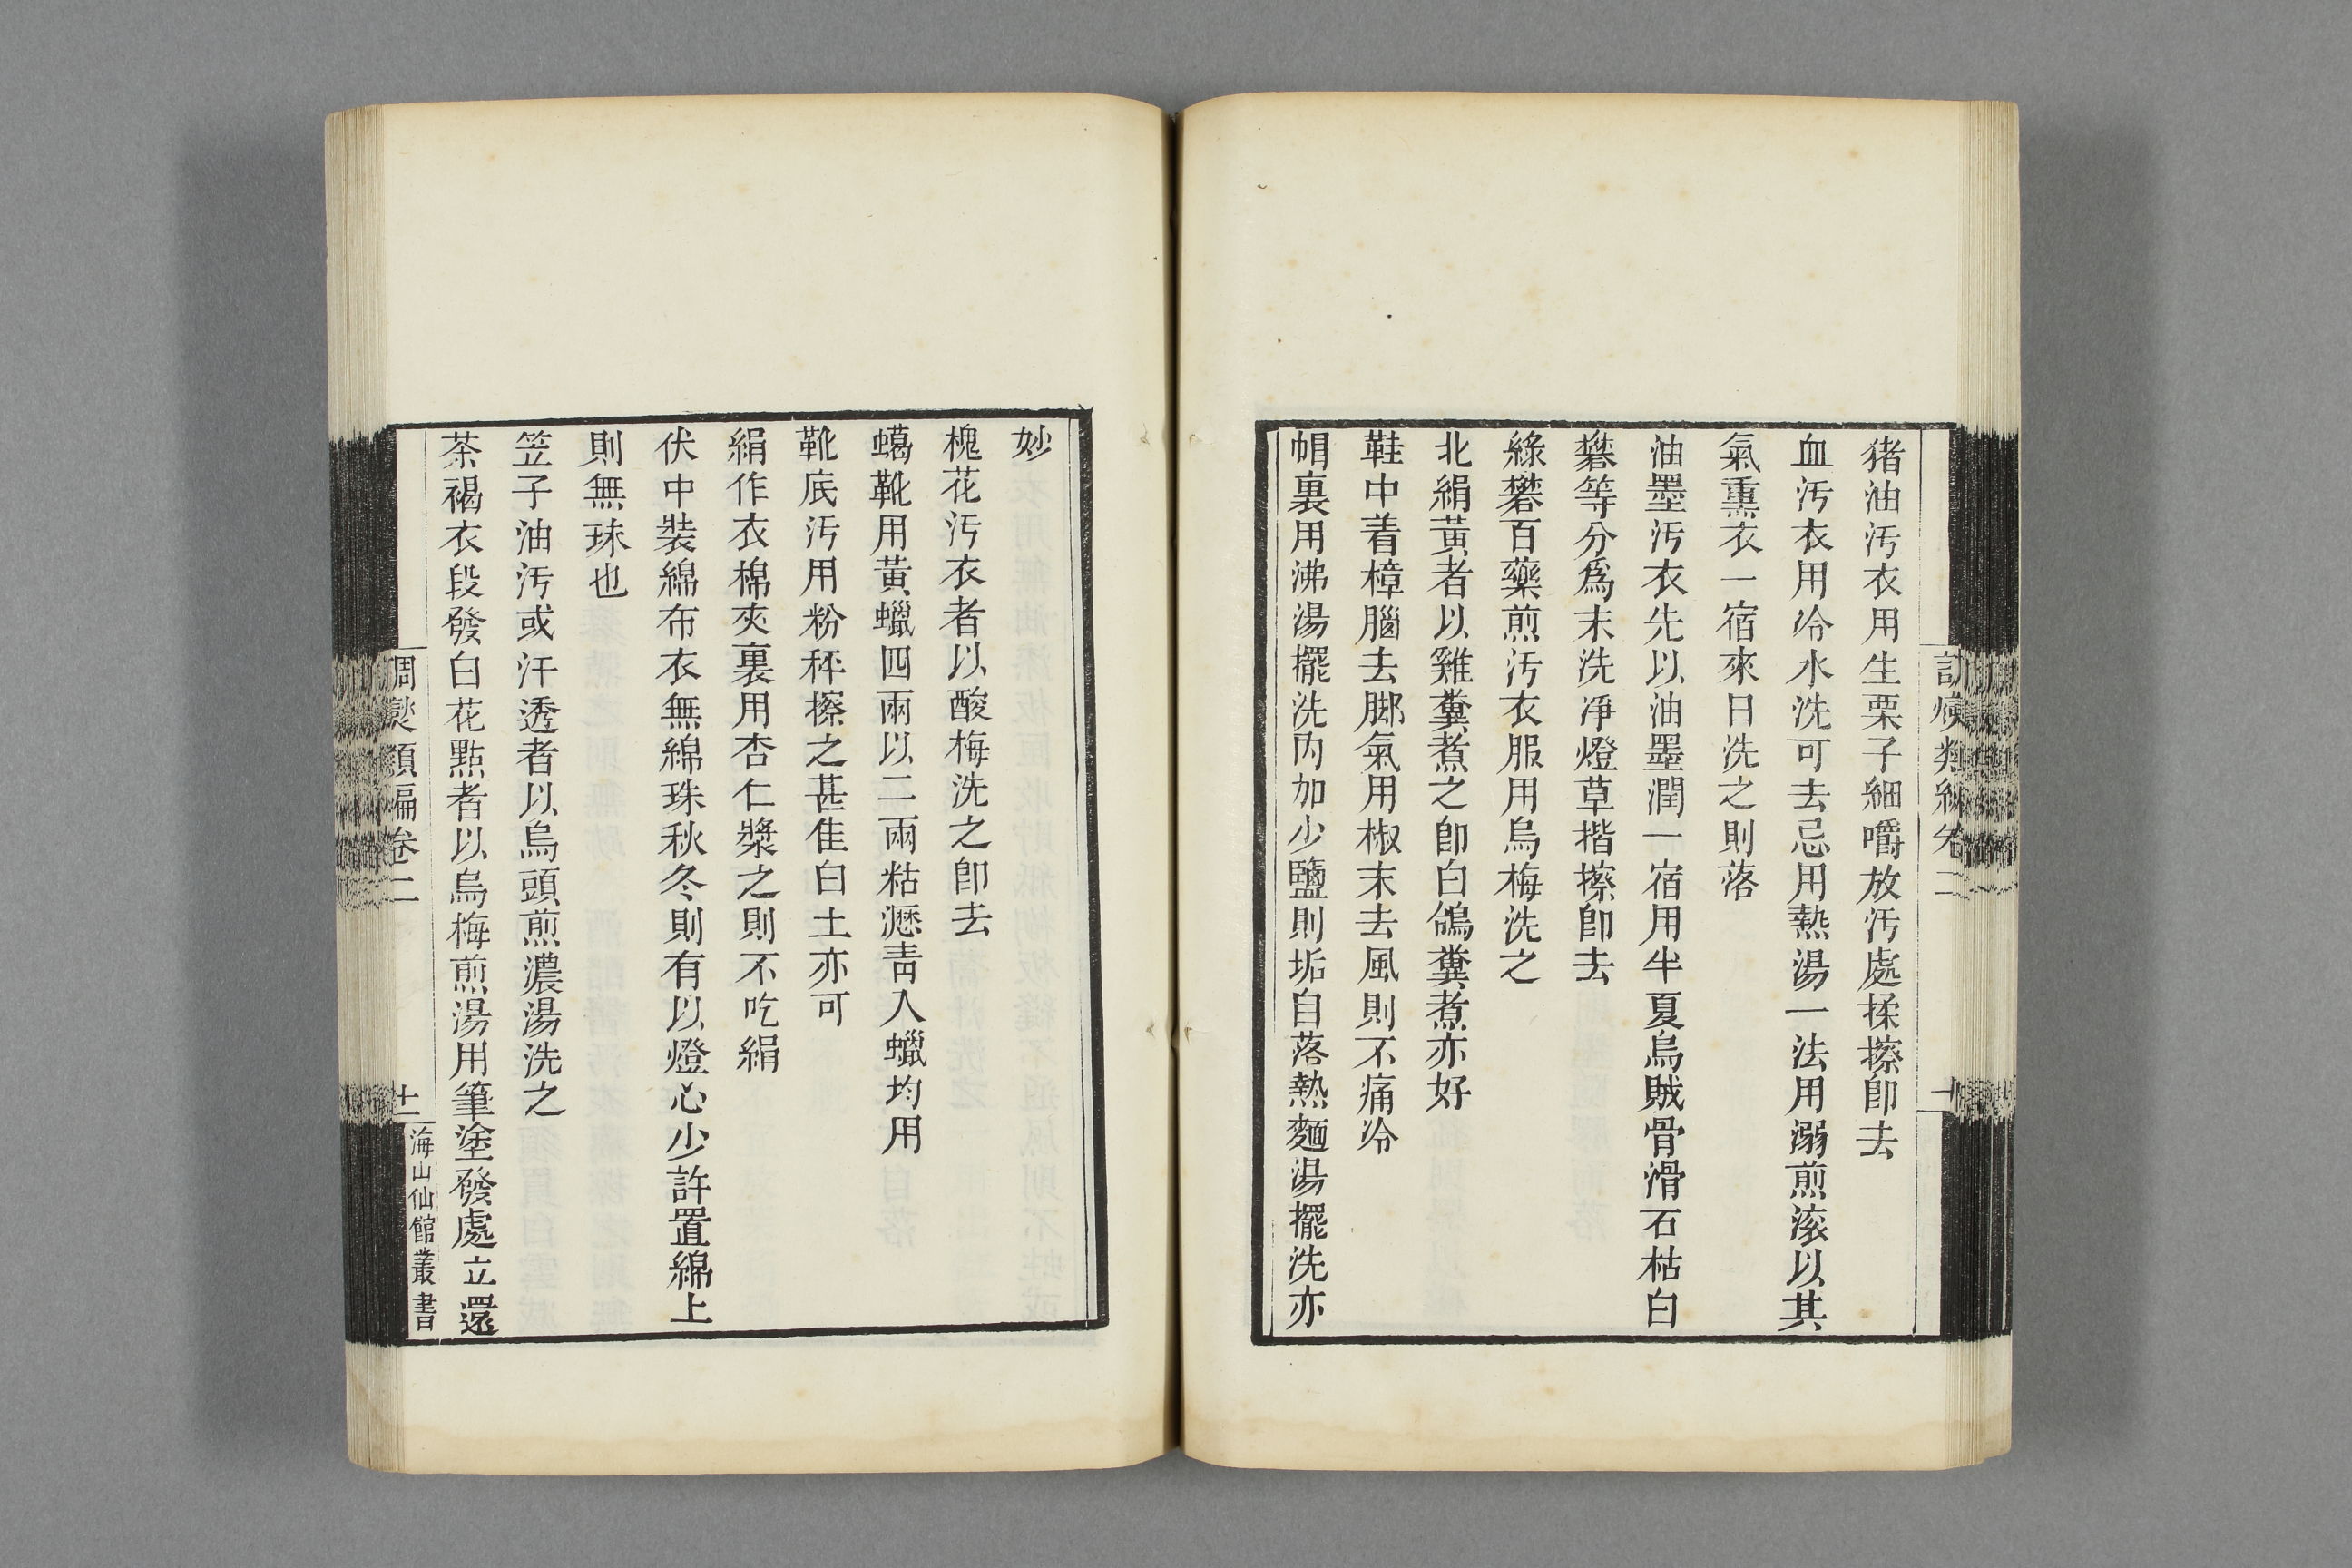 猪油汚衣用生栗子細嚼放汚處揉擦卽去
血汚衣用冷水洗可去忌用熱湯一法用溺煎滚以其
氣熏衣一宿來日洗之則落
油墨汚衣先以油墨潤一宿用半夏烏賊骨滑石枯白
礬等分爲末洗凈燈草揩擦卽去
綠礬百藥煎汚衣服用烏梅洗之
北絹黃者以雞糞煮之卽白鴿糞煮亦好
鞋中着樟腦去脚氣用椒末去風則不痛冷
帽裏用沸湯擺洗內加少鹽則垢自落熱麵湯擺洗亦
妙
槐花汚衣者以酸梅洗之卽去
蠟靴用黃蠟四兩以二兩粘瀝靑入蠟均用
靴底汚用粉秤擦之甚佳白土亦可
絹作衣棉夾裏用杏仁漿之則不吃絹
伏中裝綿布衣無綿珠秋冬則有以燈心少許置綿上
則無珠也
笠子油汚或汗透者以烏頭煎濃湯洗之
茶褐衣段發白花點者以烏梅煎湯用筆塗發處立還
調燮類編卷二
十一
海山仙館叢書